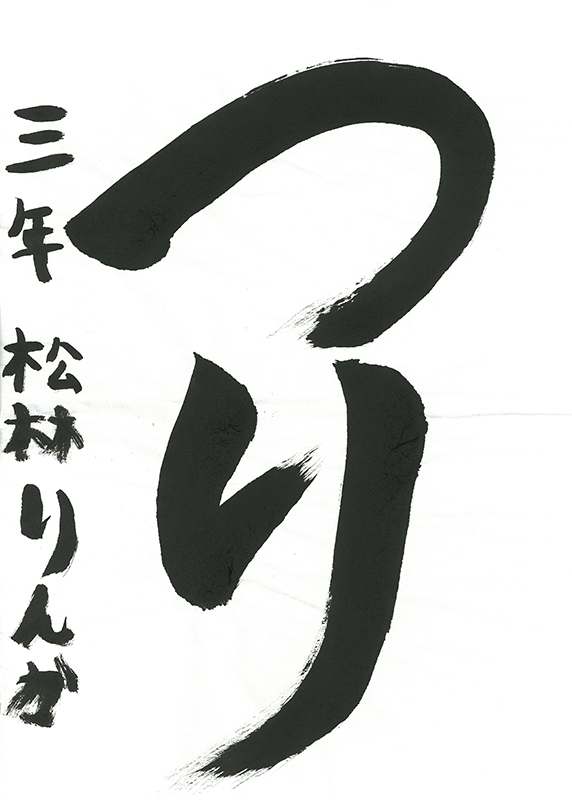 つり
三年 松林りんか